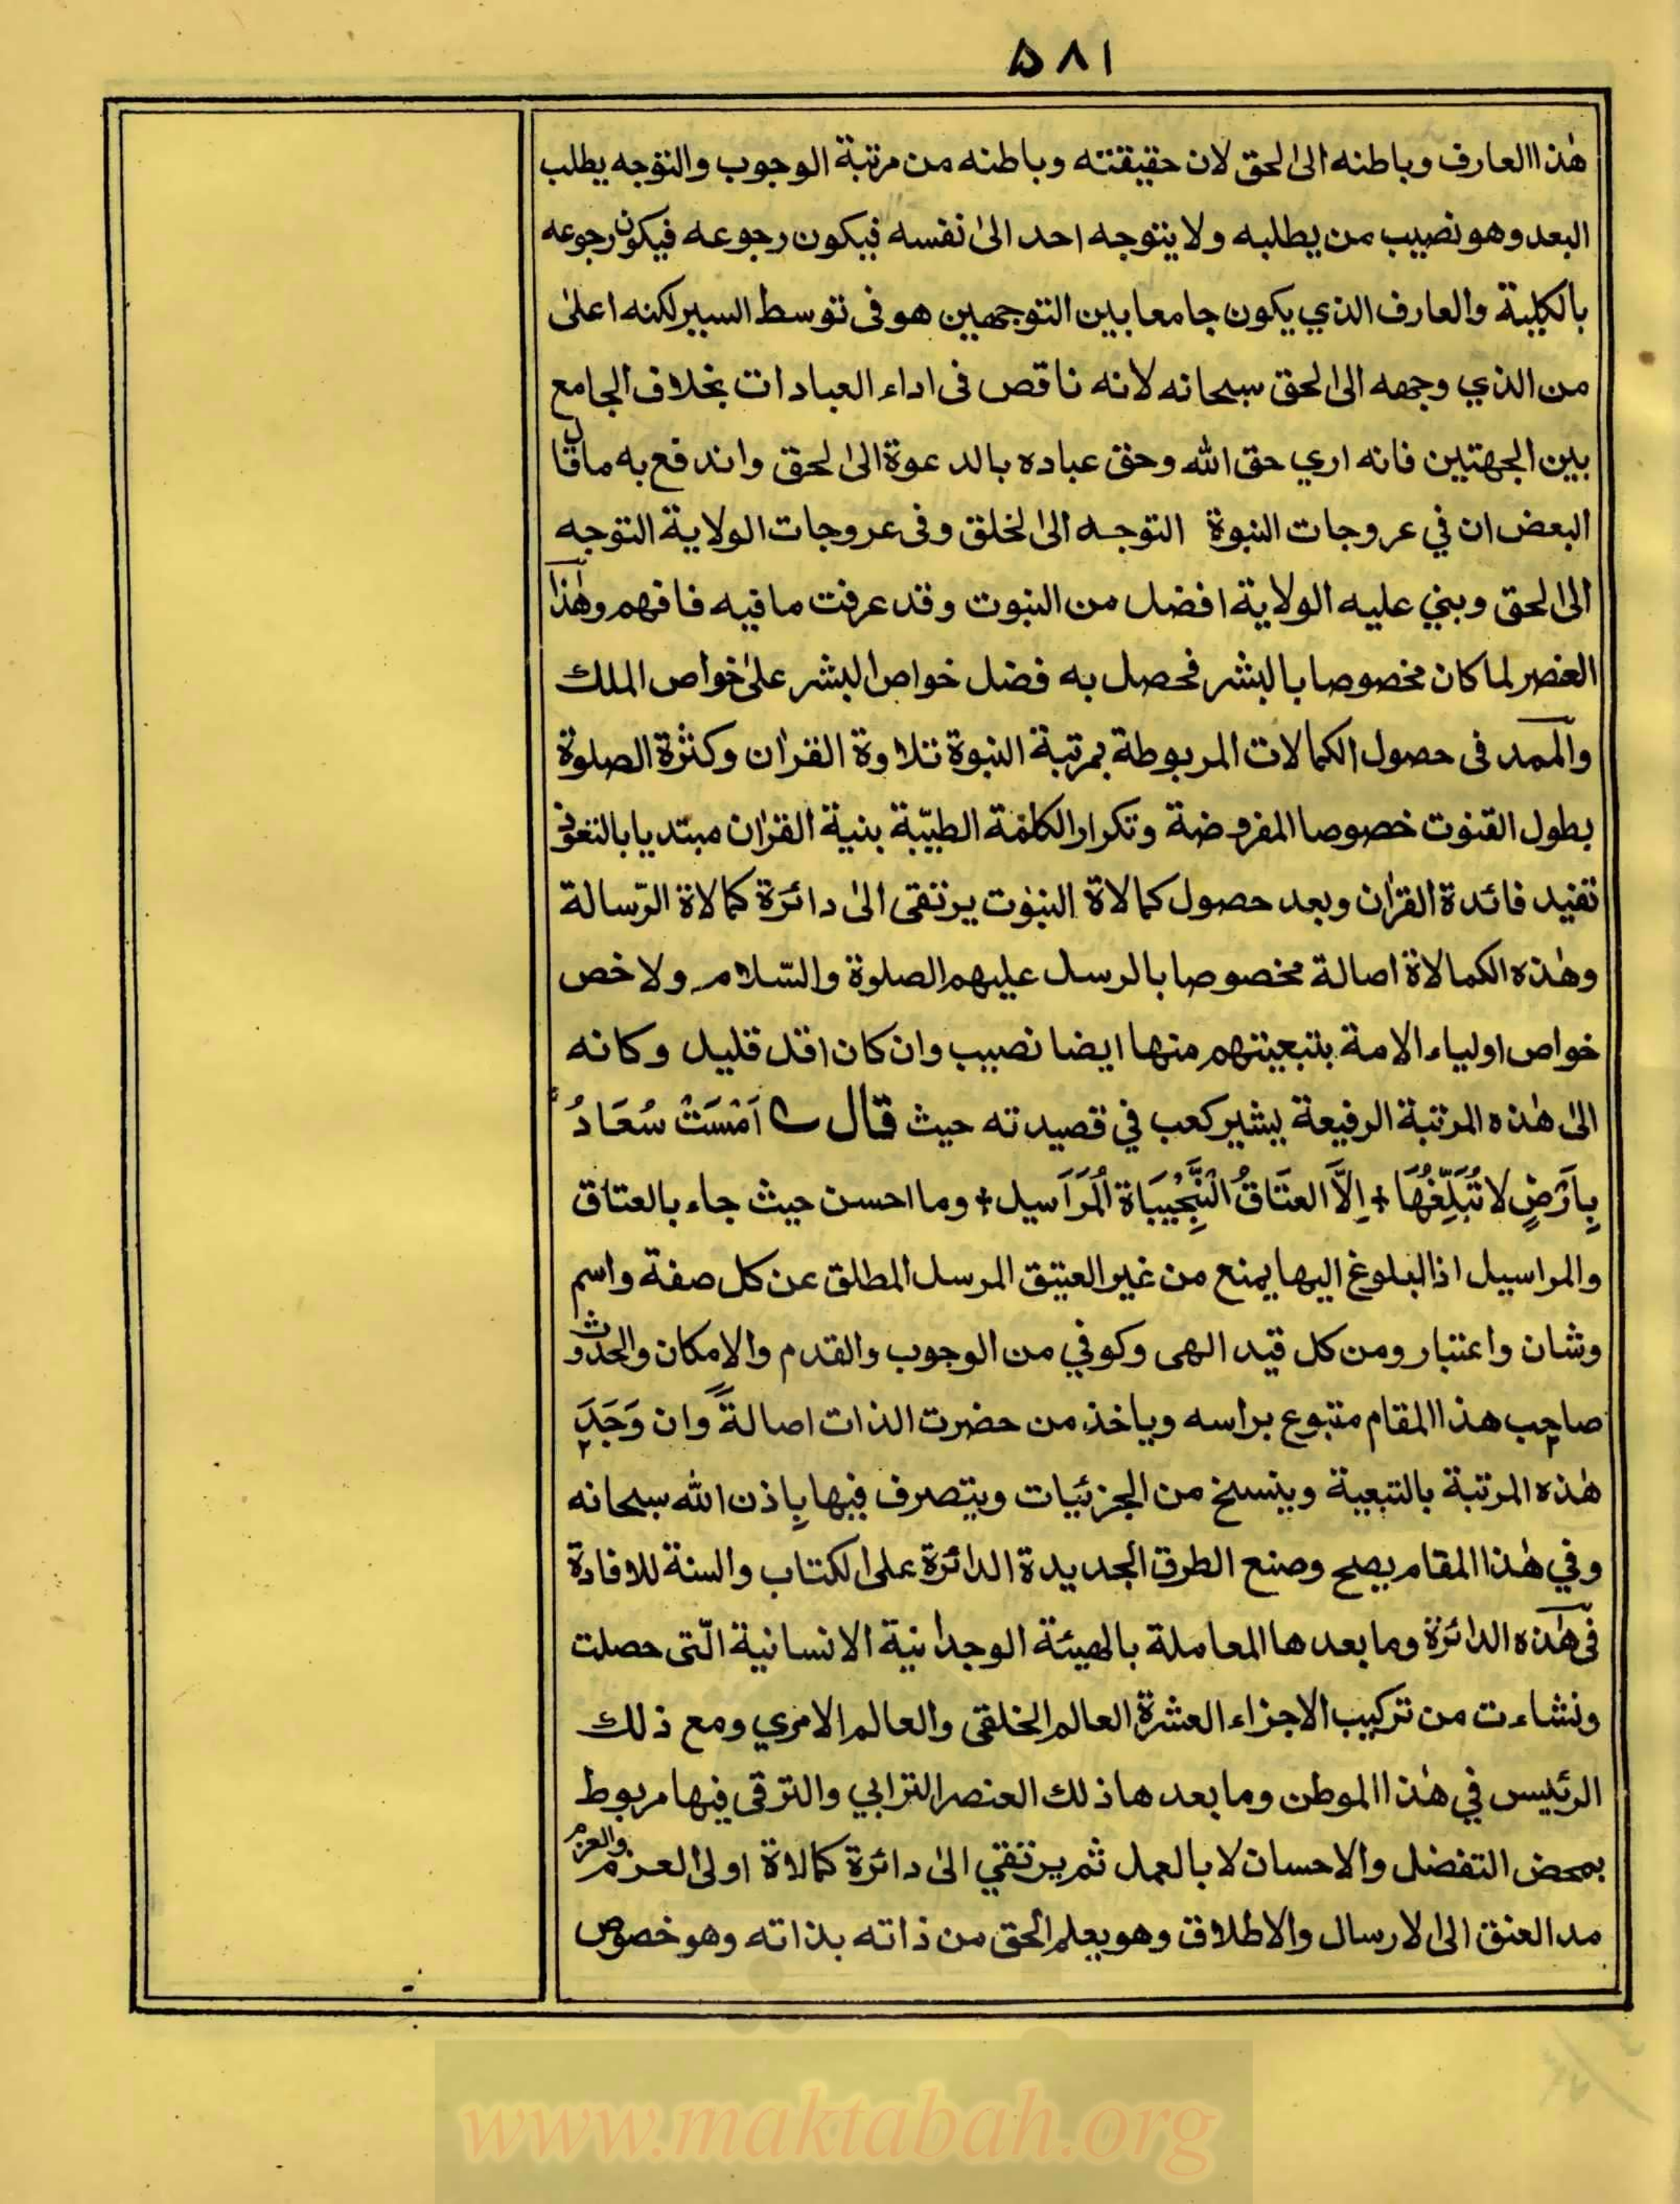 ۵۸۱
هٰذا العارف وباطنه الى الحق لان حقيقته وباطنه من مرتبة الوجوب والتوجه يطلب
البعد وهو نصيب من يطلبه ولا يتوجه احد الىٰ نفسه فيكون رجوعه فيكون رجوعه
بالكلية والعارف الذي يكون جامعا بين التوجهين هو فى توسط السير لكنه اعلىٰ
من الذي وجهه الى الحق سبحانه لانه ناقص فى اداء العبادات بخلاف الجامع
بين الجهتين فانه اري حق الله وحق عباده بالدعوة الى الحق واندفع به ما قال
البعض ان في عروجات النبوة التوجه الى الخلق وفى عروجات الولاية التوجه
الى الحق وبني عليه الولاية افضل من النبوت وقد عرفت ما فيه فافهم وهٰذا
العنصر لما كان مخصوصا بالبشر فحصل به فضل خواص البشر علىٰ خواص الملك
والممد فى حصول الكمالات المربوطة بمرتبة النبوة تلاوة القرٰان وكثرة الصلوة
بطول القنوت خصوصا المفروضة وتكرار الكلمة الطيّبة بنية القرٰان مبتديا بالتعوذ
تفيد فائدة القرٰان وبعد حصول كمالاة النبوٰت يرتقى الىٰ دائرة كمالاة الرّسالة
وهٰذه الكمالاة اصالة مخصوصا بالرسل عليهم الصلوة والسّلام ولاخص
خواص اولياء الامة بتبعيتهم منها ايضا نصيب وان كان اقل قليل وكانه
الىٰ هٰذه المرتبة الرفيعة يشير كعب في قصيدته حيث قال ؎ اَمْسَتْ سُعَادُ
بِاَرْضٍ لا تُبَلِّغُهَا + اِلَّا العتَاقُ النَّجِيْبَاة الْمَرَاسيل + وما احسن حيث جاء بالعتاق
والمراسيل اذ البلوغ اليها يمنع من غير العتيق المرسل المطلق عن كل صفة واسم
وشان واعتبار ومن كل قيد الهى وكوني من الوجوب والقدم والامكان والحدوث
صاحب هذا المقام متبوع براسه وياخذ من حضرت الذات اصالةً وان وَجَدَ
هٰذه المرتبة بالتبعية وينسخ من الجزئيات ويتصرف فيها بِاذن الله سبحانه
وفي هٰذا المقام يصح وصنع الطرق الجديدة الدائرة على الكتاب والسنة للافادة
فى هٰذه الدائرة وما بعدها المعاملة بالهيئة الوجدانية الانسانية الّتى حصلت
ونشاءت من تركيب الاجزاء العشرة العالم الخلقى والعالم الامري ومع ذلك
الرئيس في هٰذا الموطن وما بعدها ذلك العنصر الترابي والترقى فيها مربوط
بمحض التفضل والاحسان لا بالعمل ثم يرتقي الىٰ دائرة كمالاة اولى العزم والعزم
مد العنق الى الارسال والاطلاق وهو يعلم الحق من ذاته بذاته وهو خصوص
www.maktabah.org